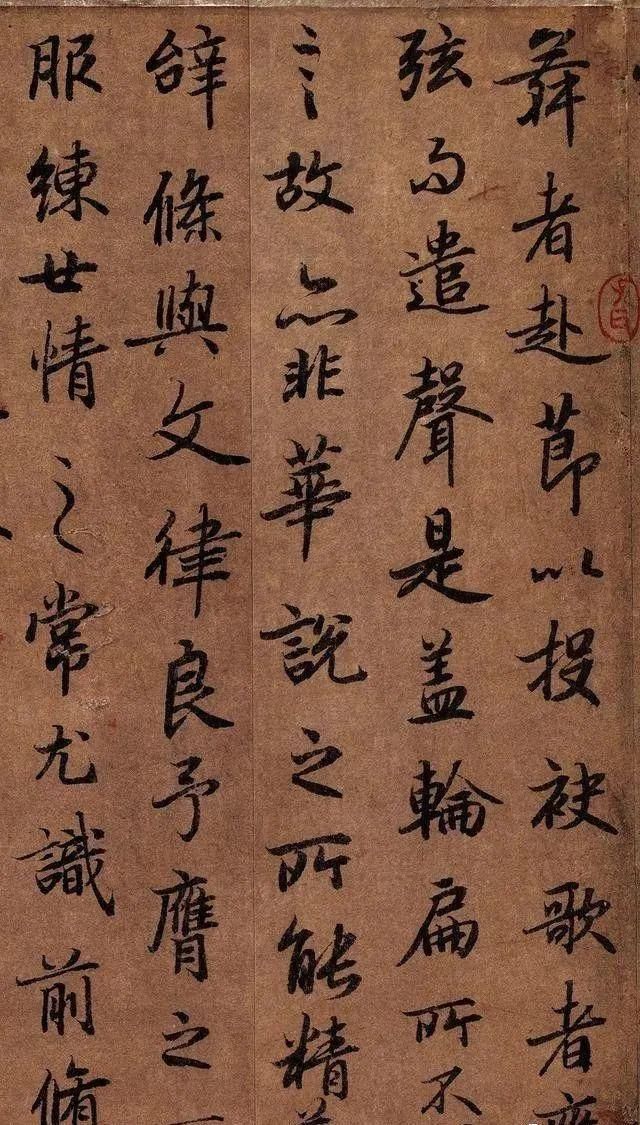 舞者赴莭以投袂歌者
弦而遣聲是盖輪扁所不
言故亦非華說之所能精
辝條與文律良予膺之
服練世情之常尤識前脩